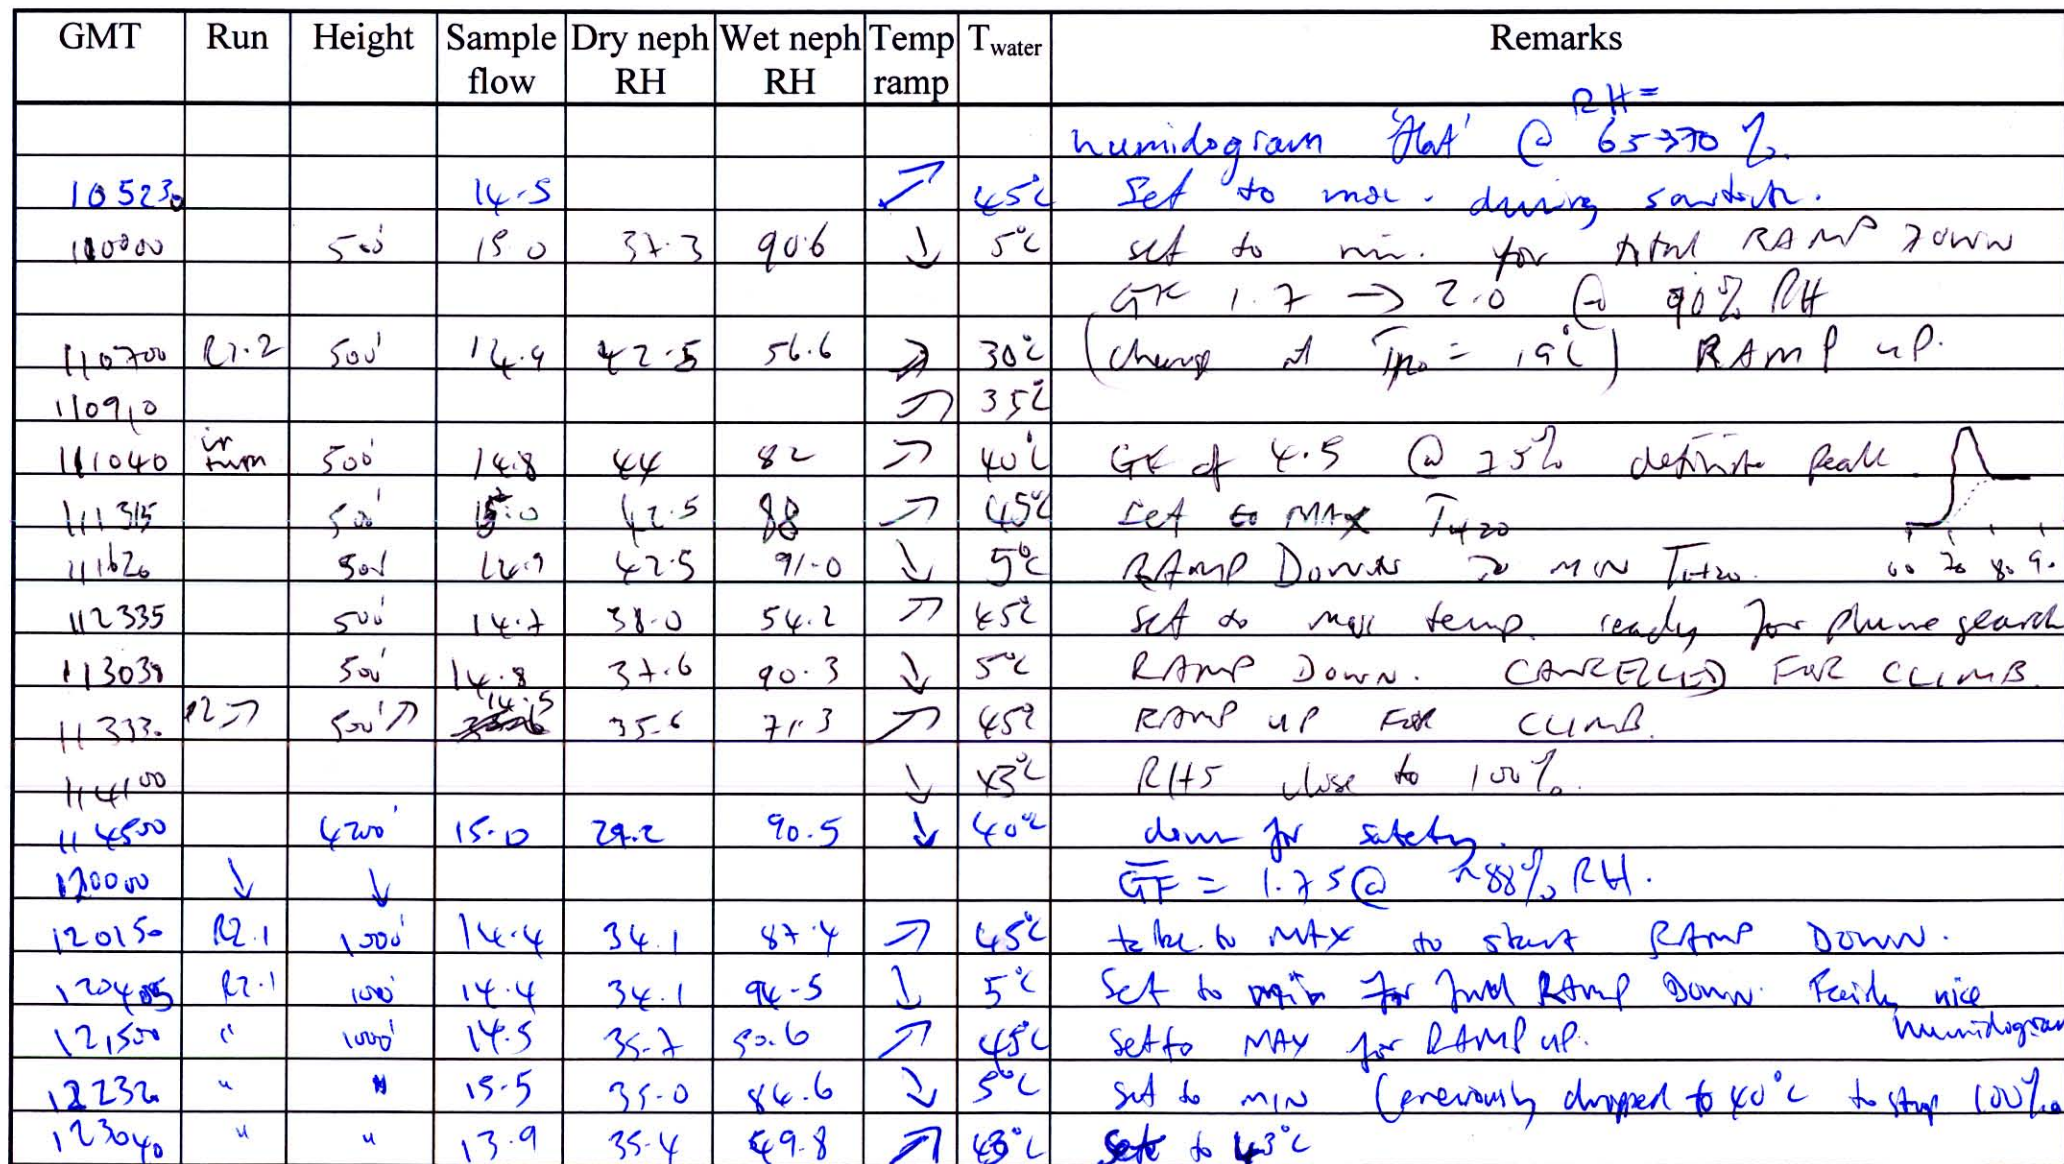 GMT Run Height Sample flow Dry neph RH Wet neph RH Temp ramp Twater Remarks
RH =
humidogram 'flat' @ 65→70 %.
105230 14.5 ↗ 45°C Set to max. during sawtooth.
110000 500' 15.0 37.3 90.6 ↓ 5°C set to min. for total RAMP DOWN
GF 1.7 → 2.0 @ 90% RH
110700 R1.2 500' 14.9 42.5 56.6 ↗ 30°C (change at TH2O = 19°C) RAMP UP.
110910 ↗ 35°C
111040 in turn 500' 14.8 44 82 ↗ 40°C GF of 4.5 @ 75% definite peak
111315 500' 15.0 42.5 88 ↗ 45°C Set to MAX TH2O
111620 500' 14.9 42.5 91.0 ↓ 5°C RAMP DOWN TO MIN TH2O. 60 70 80 90
112335 500' 14.7 38.0 54.2 ↗ 45°C Set to max temp. ready for plume search
113030 500' 14.8 37.6 90.3 ↓ 5°C RAMP DOWN. CANCELLED FOR CLIMB.
113330 R2↗ 500'↗ 14.5 35.6 71.3 ↗ 45°C RAMP UP FOR CLIMB.
114100 ↓ 43°C RHs close to 100%.
114500 4200' 15.0 29.2 90.5 ↓ 40°C down for safety.
120000 ↓ ↓ GF = 1.75 @ ~88% RH.
120150 R2.1 1000' 14.4 34.1 87.4 ↗ 45°C take to MAX to start RAMP DOWN.
120405 R2.1 1000' 14.4 34.1 94.5 ↓ 5°C Set to min for final RAMP DOWN. Fairly nice humidogram
121500 " 1000' 14.5 35.7 50.6 ↗ 45°C Set to MAX for RAMP UP.
122320 " " 15.5 35.0 84.6 ↓ 5°C Set to MIN (previously dropped to 40°C to stop 100%.
123040 " " 13.9 35.4 49.8 ↗ 43°C Set to 43°C